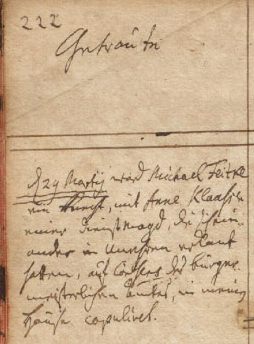 222
Getraute
d. 29 Martij ward Michael Feitke
ein Knecht, mit Anne Klaaßen
einer Dienstmagd, die sich ein-
ander in Unehren erkant
hatten, auf Consens des bürger-
meisterlichen Amtes, in meinem
Hause copuliret.